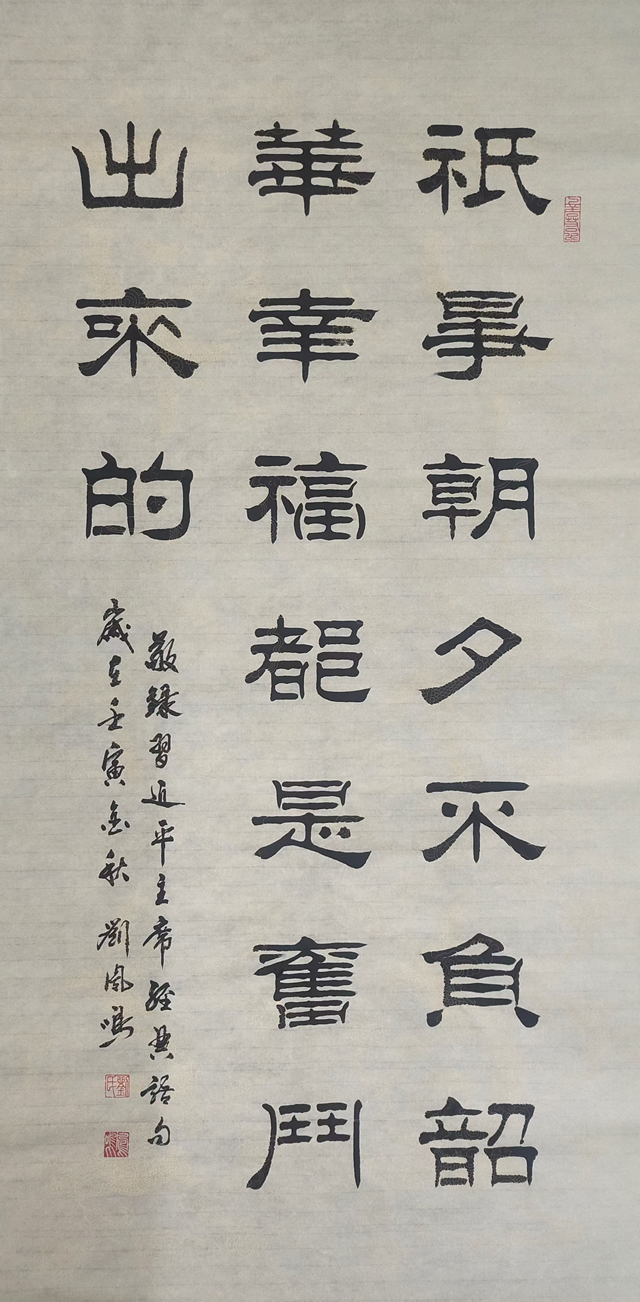 祇爭朝夕不負韶
華幸福都是奮鬥
出來的
敬録習近平主席經典語句
歲在壬寅金秋 劉鳳鳴